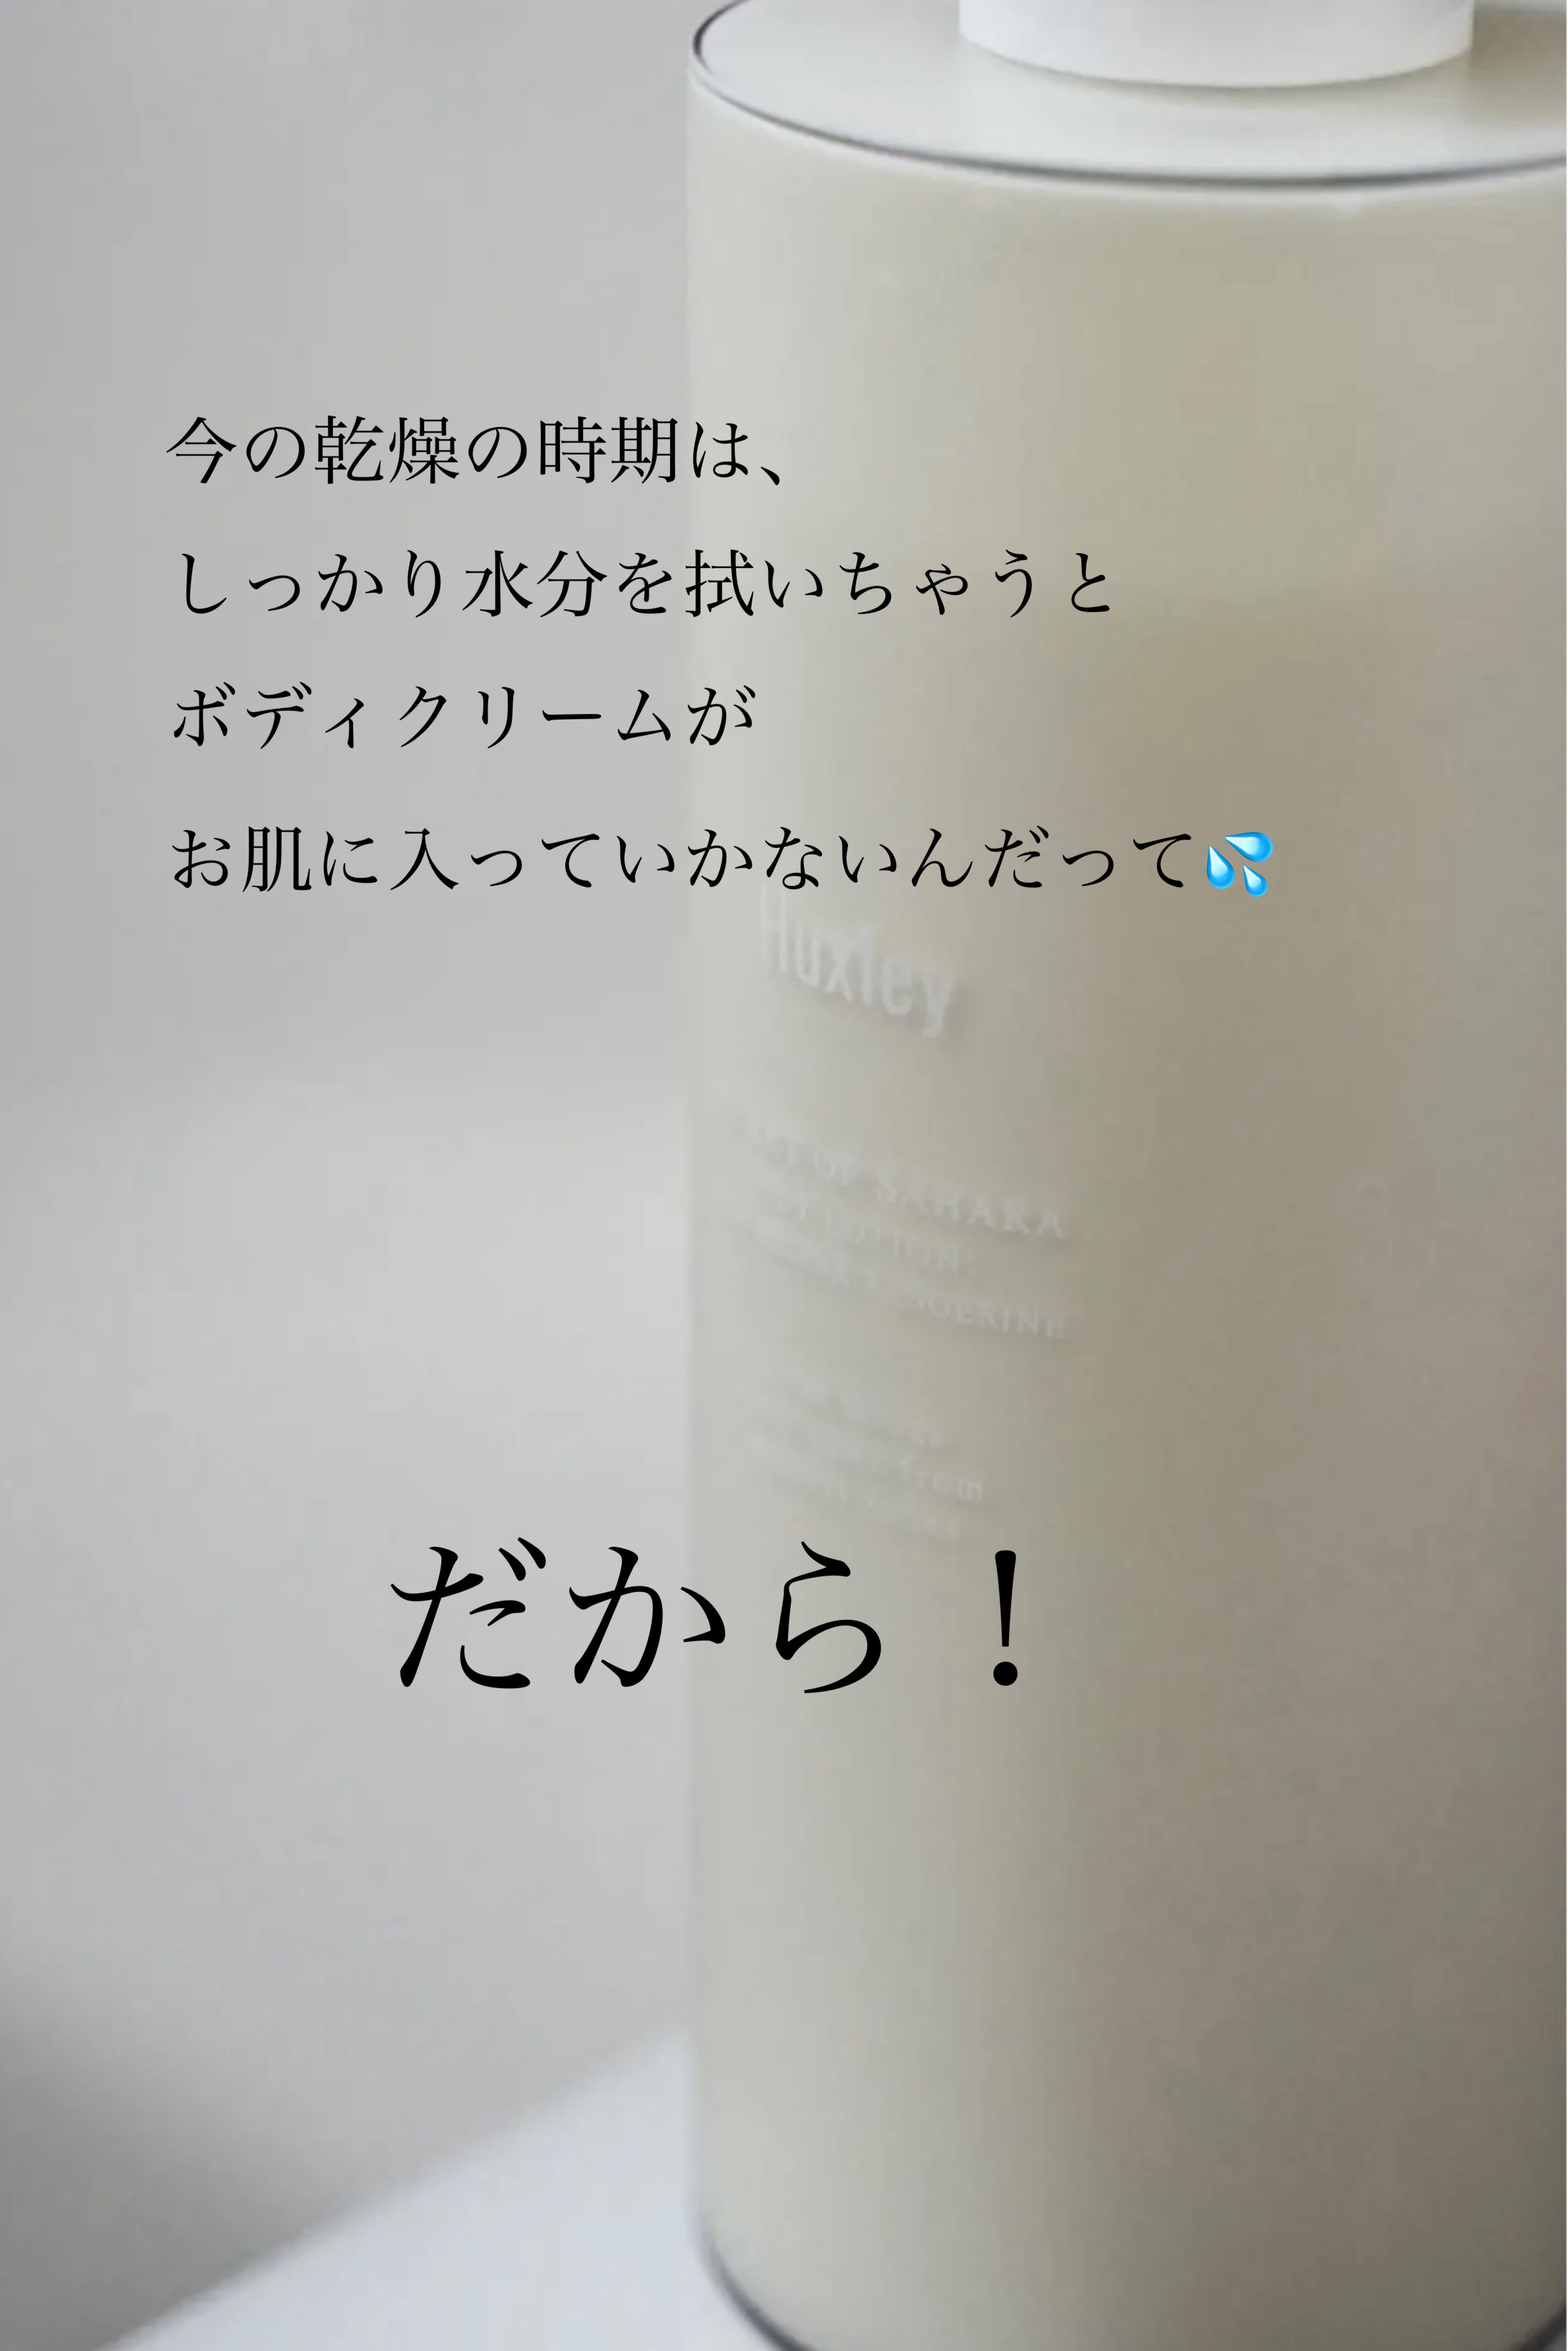 今の乾燥の時期は、
しっかり水分を拭いちゃうと
ボディクリームが
お肌に入っていかないんだって💦
Huxley
OF SAHARA
LOTION:
TANGERINE
from
だから！